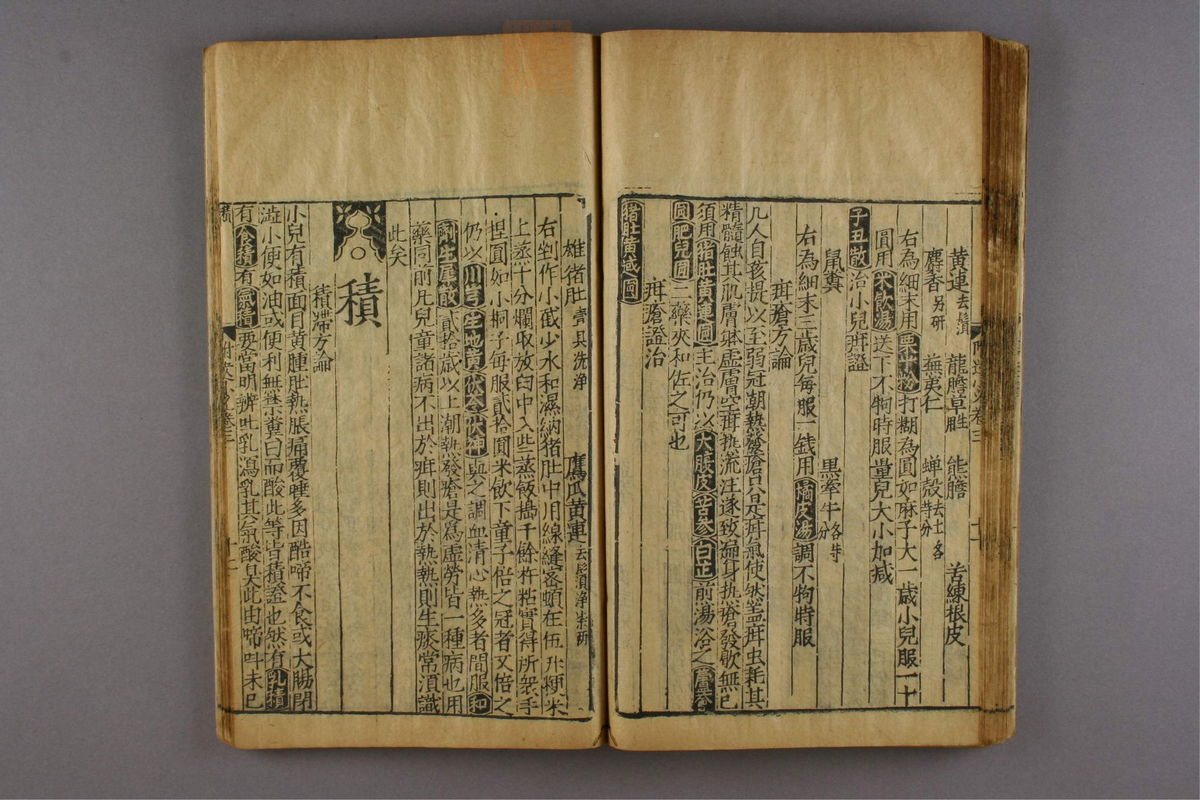 黄連去鬚 龍膽草 熊膽 苦練根皮
麝香另研 蕪荑仁 蟬殼去土各等分
右為細末用粟米粉打糊為圓如麻子大一歲小兒服一十
圓用米飲湯送下不拘時服量兒大小加减
子丑散治小兒疳證
鼠糞 黒牽牛各等分
右為細末三歲兒每服一錢用橘皮湯調不拘時服
疳瘡方論
凡人自孩提以至弱冠潮熱發瘡只是疳氣使然盖疳虫耗其
精髓蝕其肌膚躰虚膚空疳熱流注遂致遍身熱瘡發歇無已
須用猪肚黄連圓主治仍以大腹皮苦參白芷煎湯浴之蘆薈
圓肥兒圓二藥夾和佐之可也
疳瘡證治
猪肚黄連圓
雄猪肚壹具洗淨 鷹爪黄連去鬚淨
右剉作小截少水和濕納猪肚中用線縫密頓在伍升粳米
上蒸十分爛取放臼中入些蒸飯搗千餘杵粘實得所衆手
捏圓如小桐子每服貳拾圓米飲下童子倍之冠者又倍之
仍以川芎生地黄茯苓茯神與之調血清心熱多者間服和
劑生犀散貳拾歲以上潮熱發瘡是為虚勞皆一種病也用
藥同前凡兒童諸病不出於疳則出於熱熱則生痰常須識
此矣
積
積滯方論
小兒有積面目黄腫肚熱脹痛覆睡多因酷啼不食或大腸閉
澁小便如油或便利無禁糞白而酸此等皆積證也然有乳積
有食積有氣積要當明辨吐乳瀉乳其氣酸臭此由啼叫未已